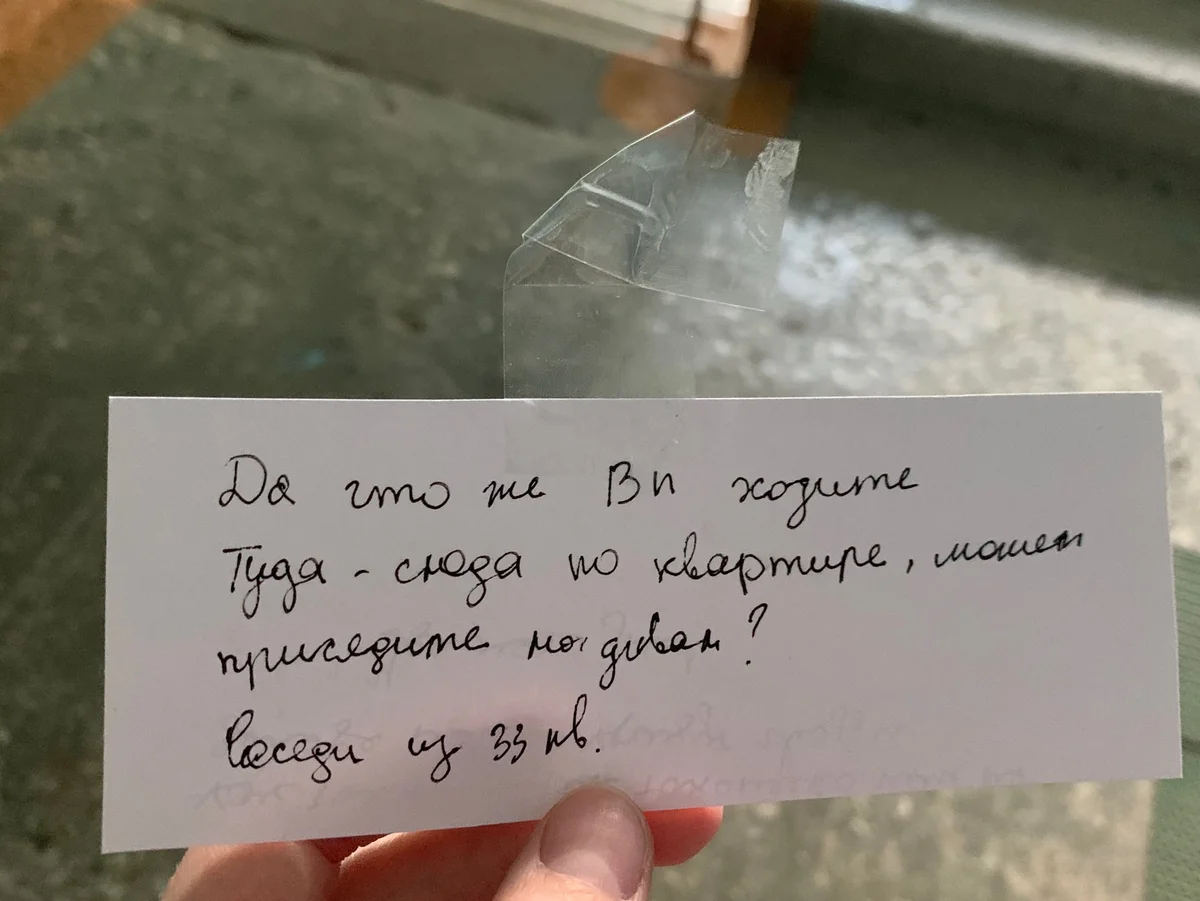 Да что же Вы ходите
Туда-сюда по квартире, может
присядите на диван?
Соседи из 33 кв.